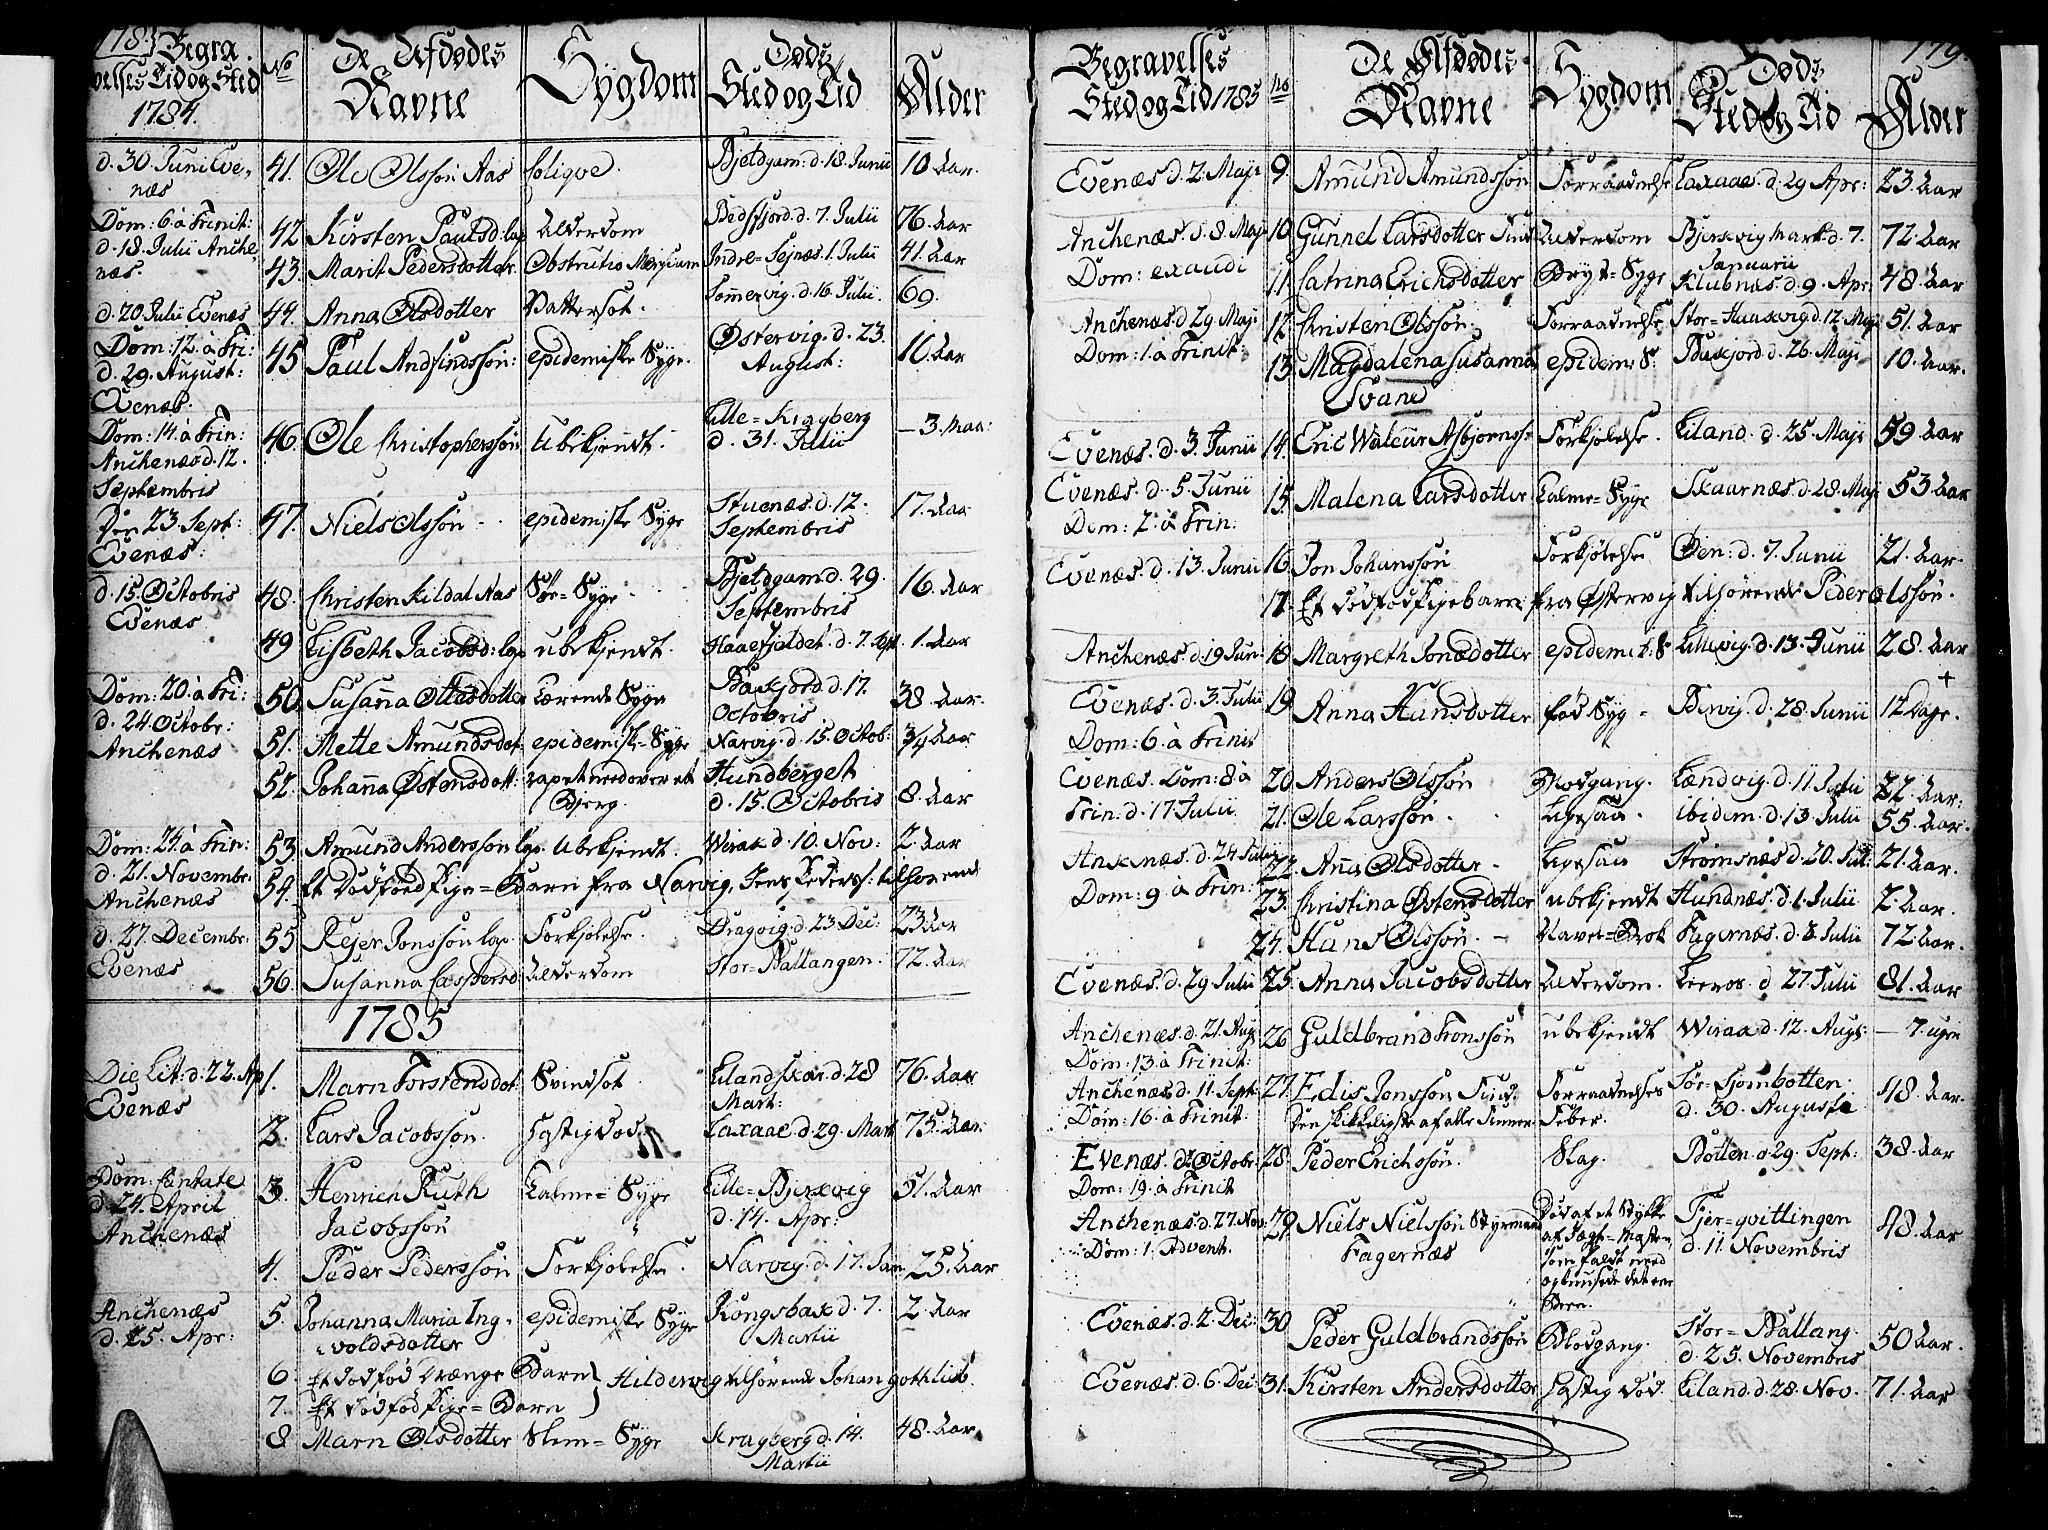 Begra-
velses Tid og Sted
1784.
No
De Afdødes
Navne
Sygdom
Døds
Sted og Tid
Alder
d. 30 Juni Eve,
næs
41. Ole Olssøn Aas Colique. d. 18 Junii 10 Aar.
Dom: 6 à Trinit:
d. 18. Julii Anche
næs.
42 Kirsten Paulsd: lap Alderdom d. 7. Julii 76. Aar
43. Marit Pedersdotter. Obstructio Mensium Indre-Sejnæs. 1. Julii 41. Aar
d. 20 Julii Evenæs
44. Anna Olsdotter Vattersot. Sommervig. d. 16 Julii. 69.
Dom: 12. à Tri:
d. 29. August:
Evenæs.
45 Paul Andfindssøn: epidemiske Syge. Østervig. d. 23. August: Aar
Dom: 14. à Trin:
Anchenæs d. 12.
Septembris
46. Ole Christopherssøn Ubekjendt. Lille-Kragberg
d. 31. Julii — 3. Maa:
Den 23. Sept:
Evenæs.
47. Niels Olssøn - - epidemiske Syge Stuenæs. d. 12.
Septembris 17. Aar
d. 15. Octobris
Evenæs
48. Christen Kildal Aas d. 29.
Septembris 16. Aar
49 Lisbeth Jacobsd: lap ubekjendt. Haaefjeldet. d. 7. Sept 1. Aar
Dom: 20. à Tri:
d. 24. Octobr:
Anchenæs
50. Susanna Ottesdotter Tærende Syge d. 17.
Octobris 38. Aar.
51. Mette Amundsdot: epidemisk-Syge Narvig. d. 15. Octob: 34 Aar
52. Johanna Østensdott: nedover et
Bjerg. Hundberget
d. 15. Octobris 8. Aar
Dom: 24. à Trin:
d. 21. Novembr:
Anchenæs
53. Amund Anderssøn lap. Ubekjendt. Wirak d. 10. Nov: 2. Aar
54. Et Dødfød Pige-Barn fra Narvig, Jens Peders: tilhørende
d. 27. Decembr:
Evenæs
55 Rejer Jonssøn lap. Forkjølelse. Dragvig. d. 23 Dec: 23 Aar
56. Susanna Caspersd Alderdom Stor-Ballangen. 72. Aar
1785
Die Lit: d. 22. Ap
Evenæs
1. Marn Torstensdot Svindsot. d. 28
Mart: 76. Aar
2. Lars Jacobssøn. Hastig Død. Laxaae. d. 29. Mart 75. Aar.
Dom: Cantate
d. 24. April
Anchenæs
3. Henrich Ruth
Jacobssøn Lalme-Syge Lille-Bjerkvig
d. 14. Apr: 51. Aar
4. Peder Pederssøn Forkjølelse. Narvig. d. 17. Jan 25. Aar
Anchenæs
d. 25. Apr:
5. Johanna Maria Ing-
voldsdotter epidemiske Syge Kongsbak d. 7.
Martii 2. Aar
6. Et dødfød Drænge Barn } Hildervig tilhørende Johan Gothlieb.
7. Et dødfød Pige-Barn
8 Marn Olsdotter Slem-Syge Kragberg d. 14.
Martii 48. Aar.
179.
Begravelses
Sted og Tid 1785
No
De Afdødes
Navne
Sygdom
Døds
Sted og Tid
Alder
Evenæs d. 2. Maji 9. Amund Amundssøn Forraadnelse Laxaae. d. 29 Apr: 23. Aar
Anchenæs d. 8. Maji
Dom: exaudi
10. Gunnel Larsdotter Find Alderdom Bjerkvig mark d. 7.
Januarii 72. Aar
11. Catrina Erichsdotter Bryst-Syge Klubnæs d. 9. Apr: 48. Aar
Anchenæs. d. 29 Maji
Dom: 1. à Trinit:
12. Christen Olssøn. Forraadnelse. Stor-Haakvig. d. 12. Maji 51. Aar
13. Magdalena Susanna
Svane epidem: S. d. 26. Maji 10. Aar.
Evenæs. d. 3. Junii 14. Eric Waleur Asbjørnss. Forkjølelse. Eiland. d. 25. Maji 59. Aar
Evenæs. d. 5. Junii
Dom: 2. à Trin:
15. Malena Larsdotter Lalme-Syge Skaarnæs. d. 28. Maji 53 Aar
Evenæs. d. 13. Junii 16. Jon Johanssøn Forkjølelse Øen: d. 7. Junii 21. Aar.
17. Et dødfød Pigebarn: fra Østervig tilhørende Peder Olssøn.
Anchenæs. d. 19 Jun: 18 Margreth Jonædotter epidemisk: S Lillevig. d. 13. Junii 28. Aar
Evenæs. d. 3. Julii
Dom: 6. à Trinit
19 Anna Hansdotter fød Syg - d. 28. Junii 12 Dage. +
Evenæs. Dom: 8 à
Trin. d. 17 Julii
20. Anders Olssøn Blodgang. Lændvig. d. 11. Julii 32. Aar:
21. Ole Larssøn. Ligesaa. ibidem. d. 13. Julii 55. Aar.
Anknæs. d. 24 Julii
Dom: 9 à Trin:
22. Anna Olsdotter - Ligesaa Strømsnæs d. 20. Jul: 21. Aar.
23. Christina Østensdotter ubekjendt Hundnæs. d. 1. Julii 2. Aar.
24. Hans Olssøn. - Navel-Brok Fagernæs. d. 8. Julii 72. Aar.
Evenæs. d. 29 Julii 25. Anna Jacobsdotter Alderdom. d 27 Julii 81. Aar
Anchenæs. d. 21. Aug:
Dom: 13 à Trinit:
26 Guldbrand Tronssøn ubekjendt Wirak d. 12. Aug: — 7. uger
Anchenæs d. 11. Sept
Dom: 16. à Trinit.
27. Edis Jonssøn Find.
Den skikkeligste af alle Finner Forraadnelses
Feber. Sør-Sjombotten.
d. 30. Augusti 48. Aar.
Evenæs. d. 2 Octobr:
Dom: 19. à Trinit
28. Peder Erichssøn. Slag. Botten. d 29. Sept: 38. Aar
Anchenæs. d. 27. Nov:
Dom: 1. Advent.
29. Niels Nielssøn Styrmand
Fagernæs Død af et Stykke
af Jagt-Masten,
som faldt ned
og knusede det ene
Been. Fjer-qvitlingen
d. 11. Novembris 48. Aar
Evenæs. d. 2. Dec: 30 Peder Guldbrandssøn Blodgang. Stor-Ballang.
d. 25. Novembris 50 Aar.
Evenæs. d. 6. Dec: 31. Kirsten Andersdotter Hastig Død. Eiland. d. 28. Nov. 71. Aar